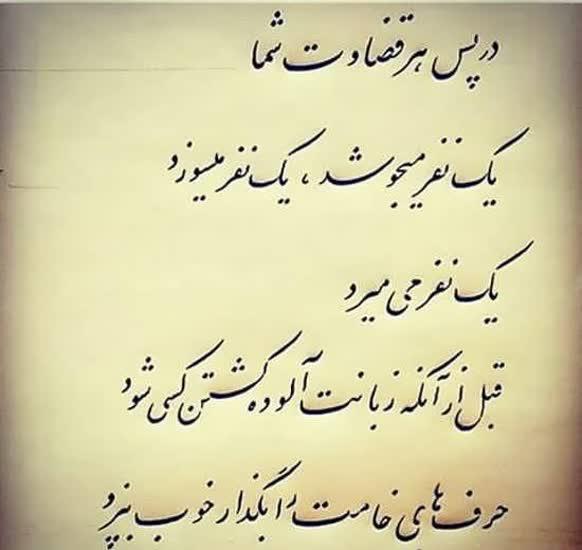 در پس هر قضاوت شما
یک نفر میجوشد ، یک نفر میسوزد
یک نفر می میرد
قبل از آنکه زبانت آلوده کشتن کسی شود
حرف های خامت را بگذار خوب بپزد